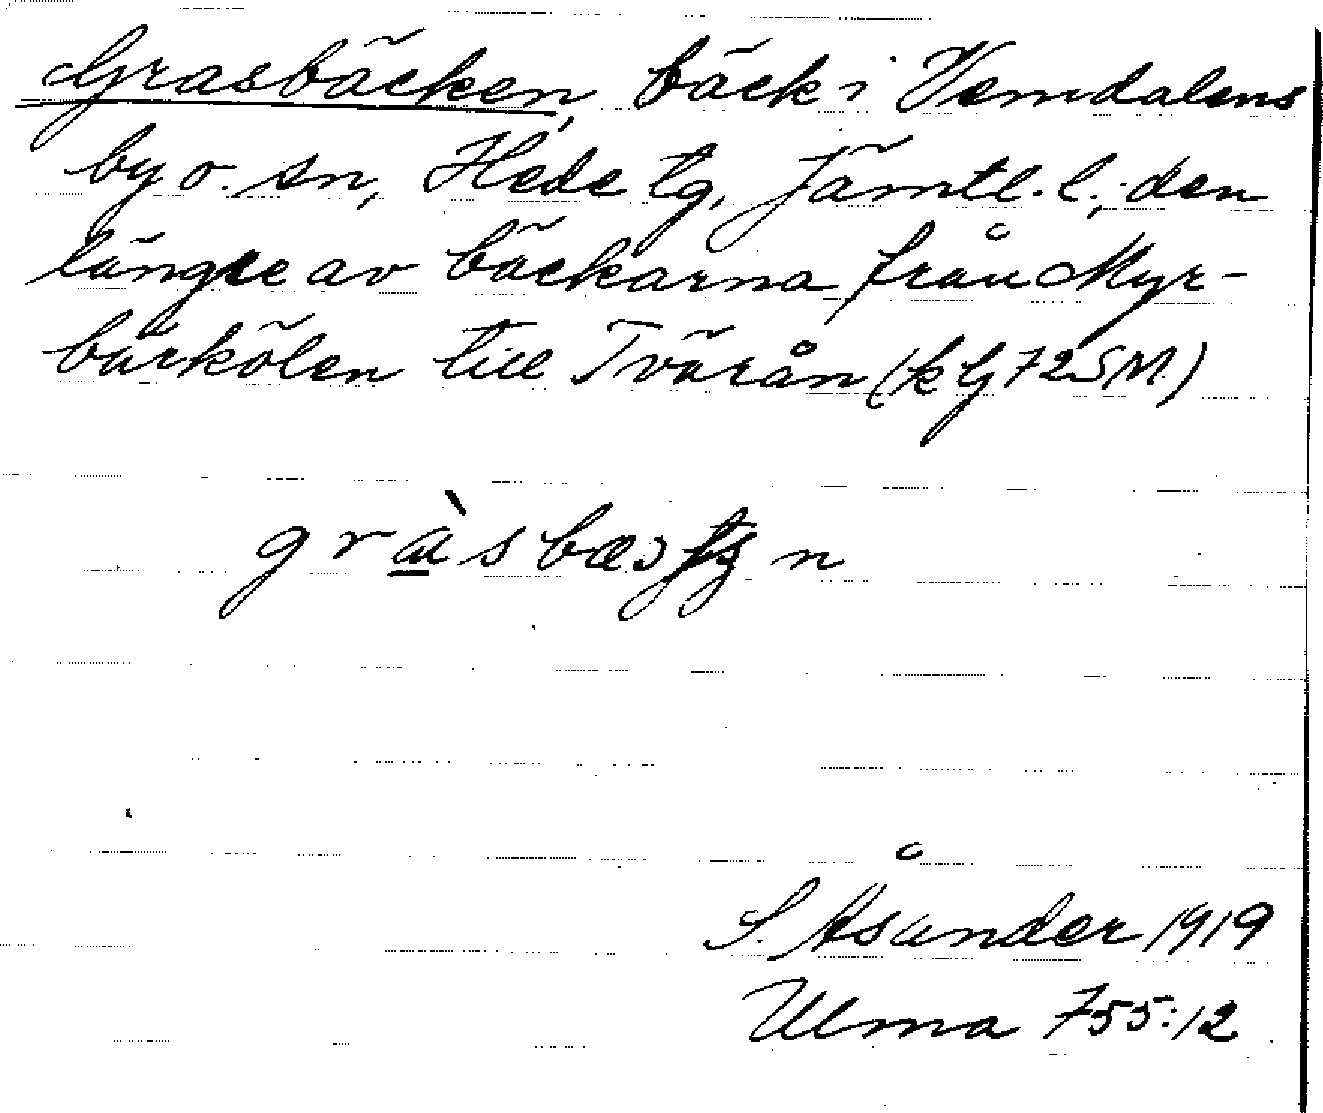 Grasbäcken, bäck i Vemdalens
by o. sn, Hede tg, Jämtl. l.; den
längre av bäckarna från Myr-
bärkölen till Tvärån (kbl 72 SM.)
S. Åsander 1919
Ulma 755:12